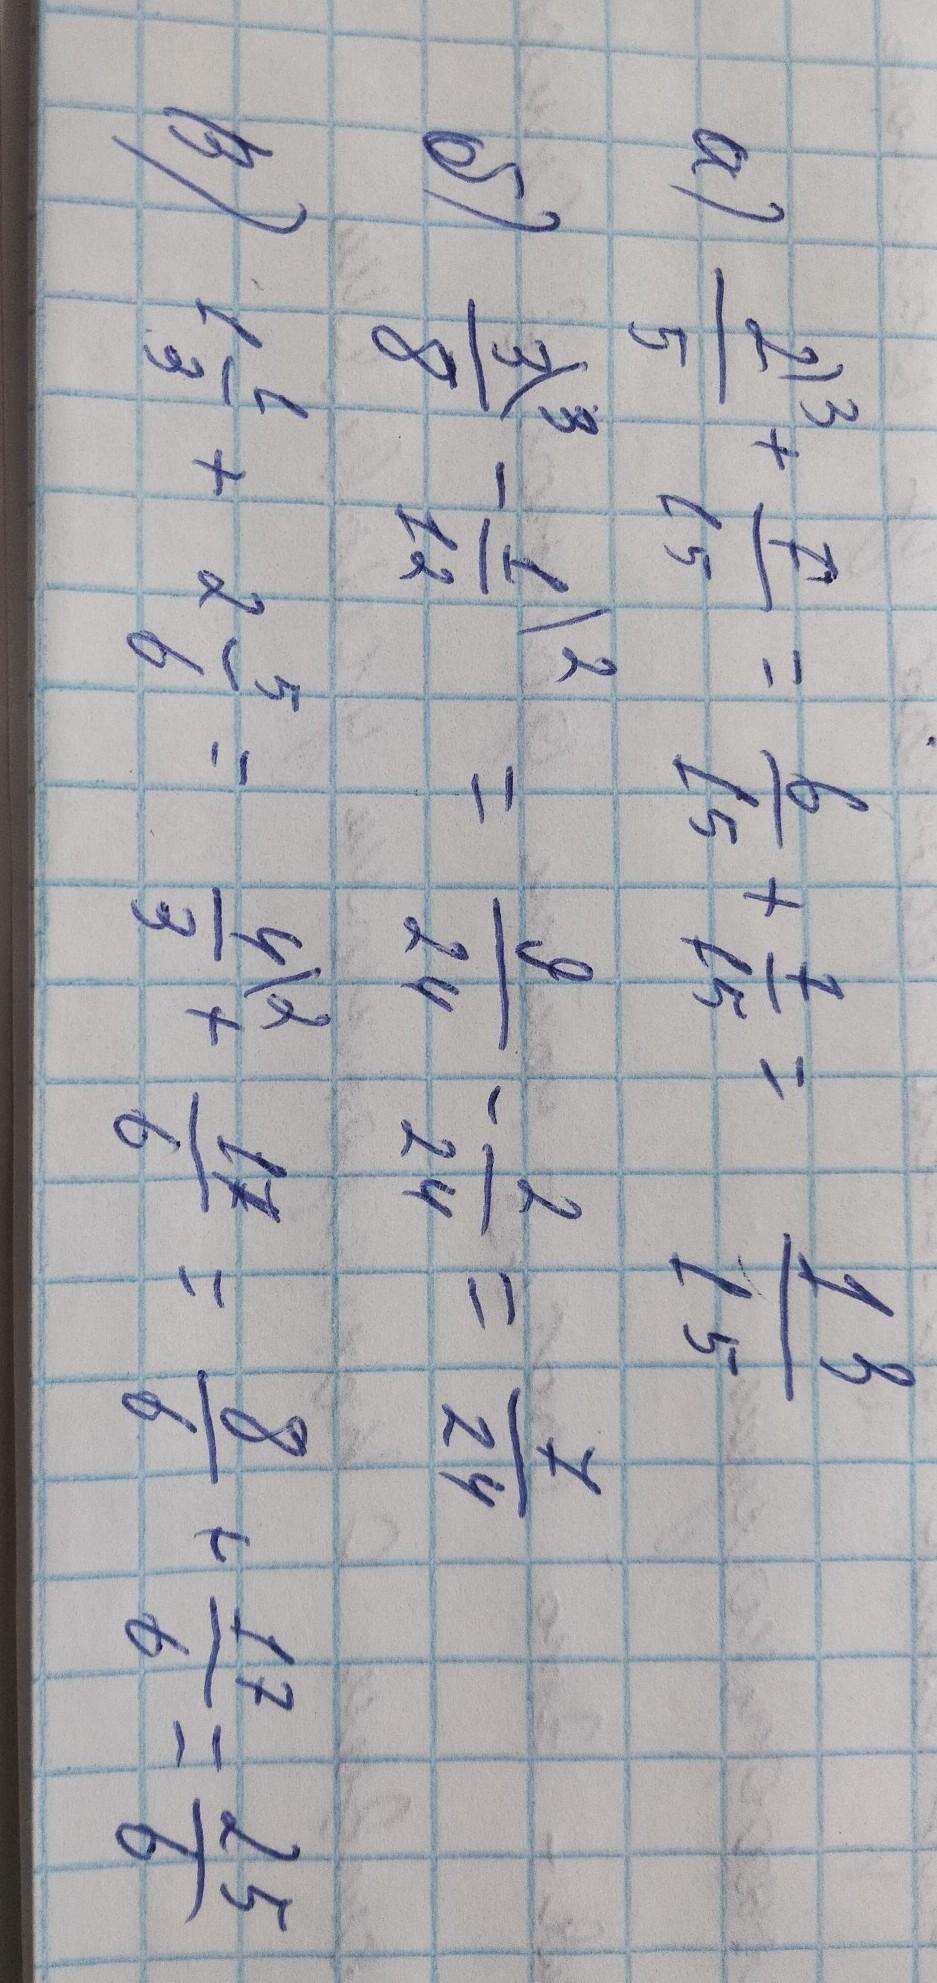 а) 2\3/5 + 7/15 = 6/15 + 7/15 = 13/15
б) 3\3/8 - 1\2/12 = 9/24 - 2/24 = 7/24
в) 1 1/3 + 2 5/6 = 4\2/3 + 17/6 = 8/6 + 17/6 = 25/6